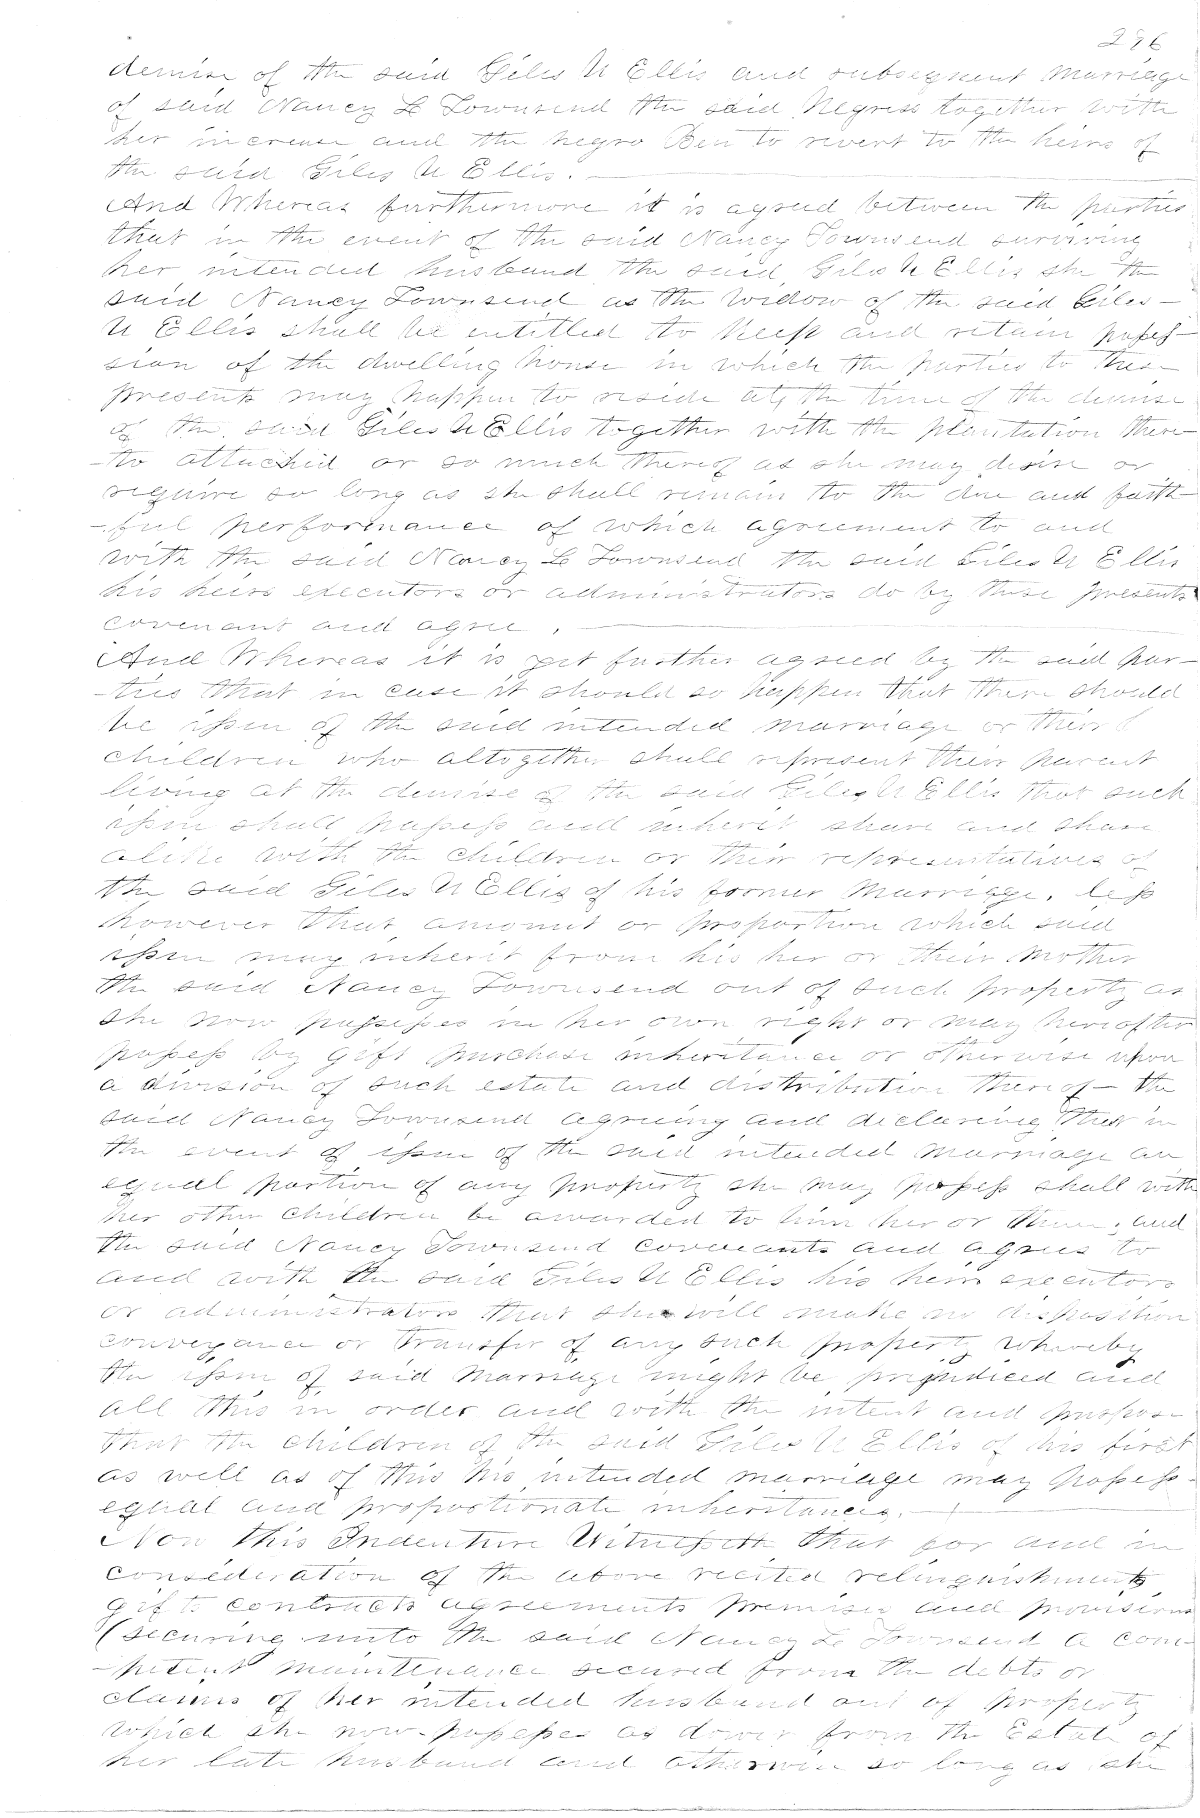 296
demise of the said Giles N Ellis and subsequent marriage
of said Nancy L Townsend the said Negress together with
her increase and the negro Ben to revert to the heirs of
the said Giles N Ellis. —
And Whereas furthermore it is agreed between the parties
that in the event of the said Nancy Townsend surviving
her intended husband the said Giles N Ellis she the
said Nancy Townsend as the widow of the said Giles –
N Ellis shall be entitled to keep and retain posses–
sion of the dwelling house in which the parties to these
presents may happen to reside at the time of the demise
of the said Giles N Ellis together with the plantation there–
–to attached or so much thereof as she may desire or
require so long as she shall remain to the due and faith–
–ful performance of which agreement to and
with the said Nancy L Townsend the said Giles N Ellis
his heirs executors or administrators do by these presents
covenant and agree. —
And Whereas it is yet further agreed by the said par–
–ties that in case it should so happen that there should
be issue of the said intended marriage or their
children who altogether shall represent their parent
living at the demise of the said Giles N Ellis that such
issue shall possess and inherit share and share
alike with the children or their representatives of
the said Giles N Ellis of his former marriage, less
however that amount or proportion which said
issue may inherit from his her or their mother
the said Nancy Townsend out of such property as
she now possesses in her own right or may hereafter
possess by gift purchase inheritance or otherwise upon
a division of such estate and distribution thereof – the
said Nancy Townsend agreeing and declaring that in
the event of issue of the said intended marriage an
equal portion of any property she may possess shall with
her other children be awarded to him her or them, and
the said Nancy Townsend covenants and agrees to
and with the said Giles N Ellis his heirs executors
or administrators that she will make no disposition
conveyance or transfer of any such property whereby
the issue of said marriage might be prejudiced and
all this in order and with the intent and purpose
that the children of the said Giles N Ellis of his first
as well as of this his intended marriage may possess
equal and proportionate inheritances. —
Now this Indenture Witnesseth that for and in
consideration of the above recited relinquishments
gifts contracts agreements premises and provisions
(securing unto the said Nancy L Townsend a com–
–petent maintenance secured from the debts or
claims of her intended husband out of property
which she now possesses as dower from the Estate of
her late husband and otherwise so long as she